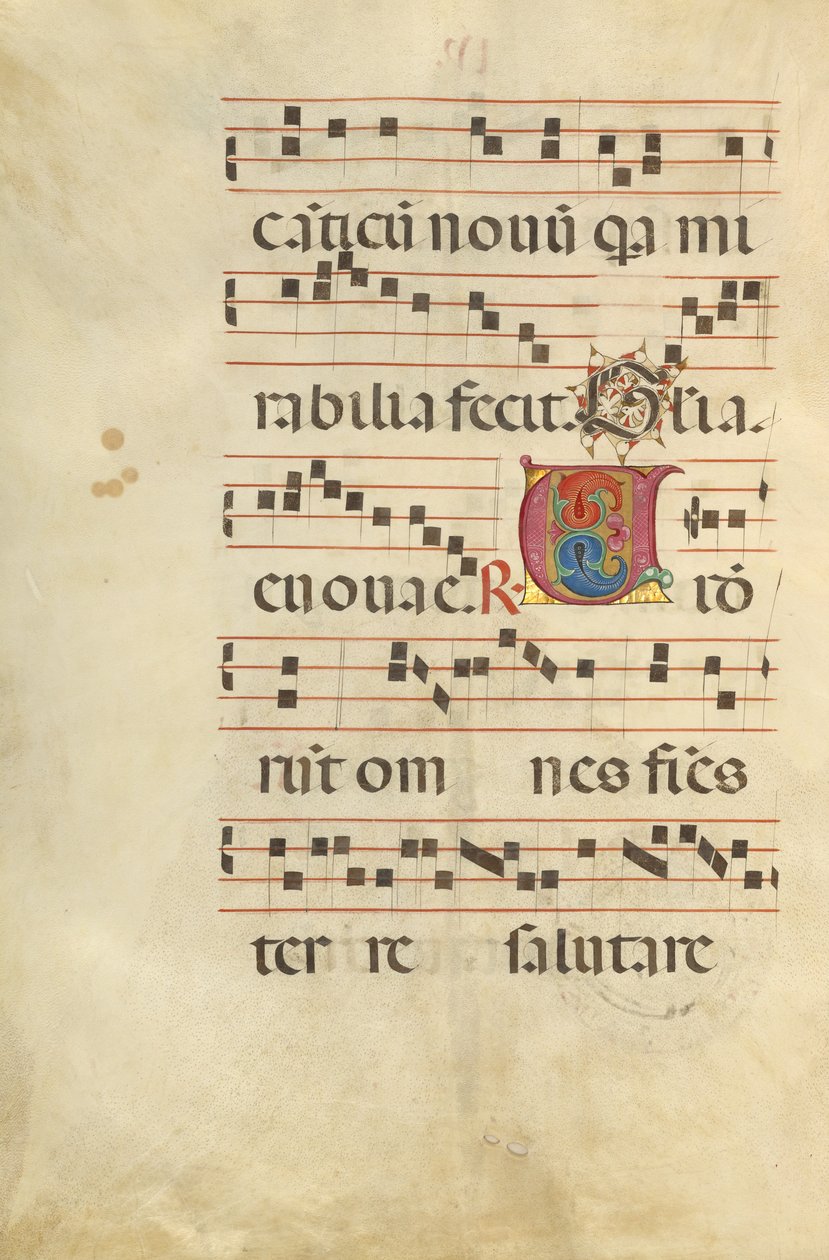 cāticū nouū qa mi
rabilia fecit. Gl̄ia.
euouae. R. U idē
rūt om nes fīes
ter re salutare